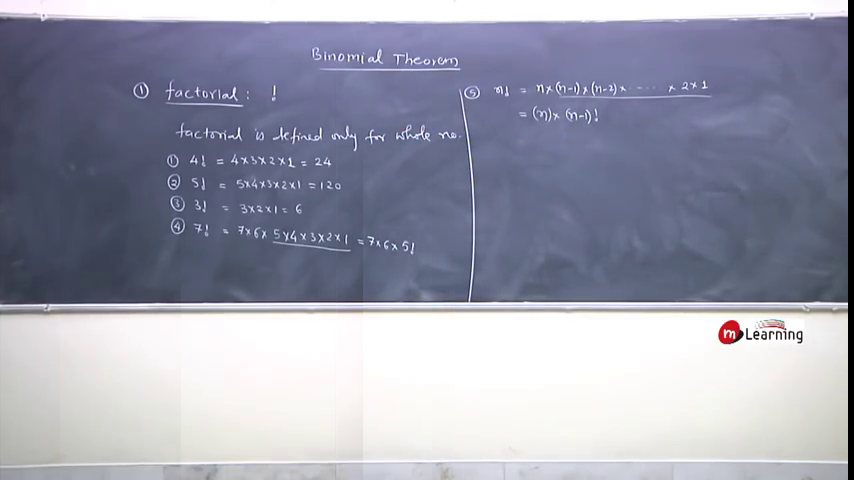 Binomial Theorem
① factorial : !
factorial is defined only for whole no.
① 4! = 4×3×2×1 = 24
② 5! = 5×4×3×2×1 = 120
③ 3! = 3×2×1 = 6
④ 7! = 7×6×5×4×3×2×1 = 7×6×5!
⑤ n! = n×(n-1)×(n-2)×-----×2×1
= (n)×(n-1)!
m Learning